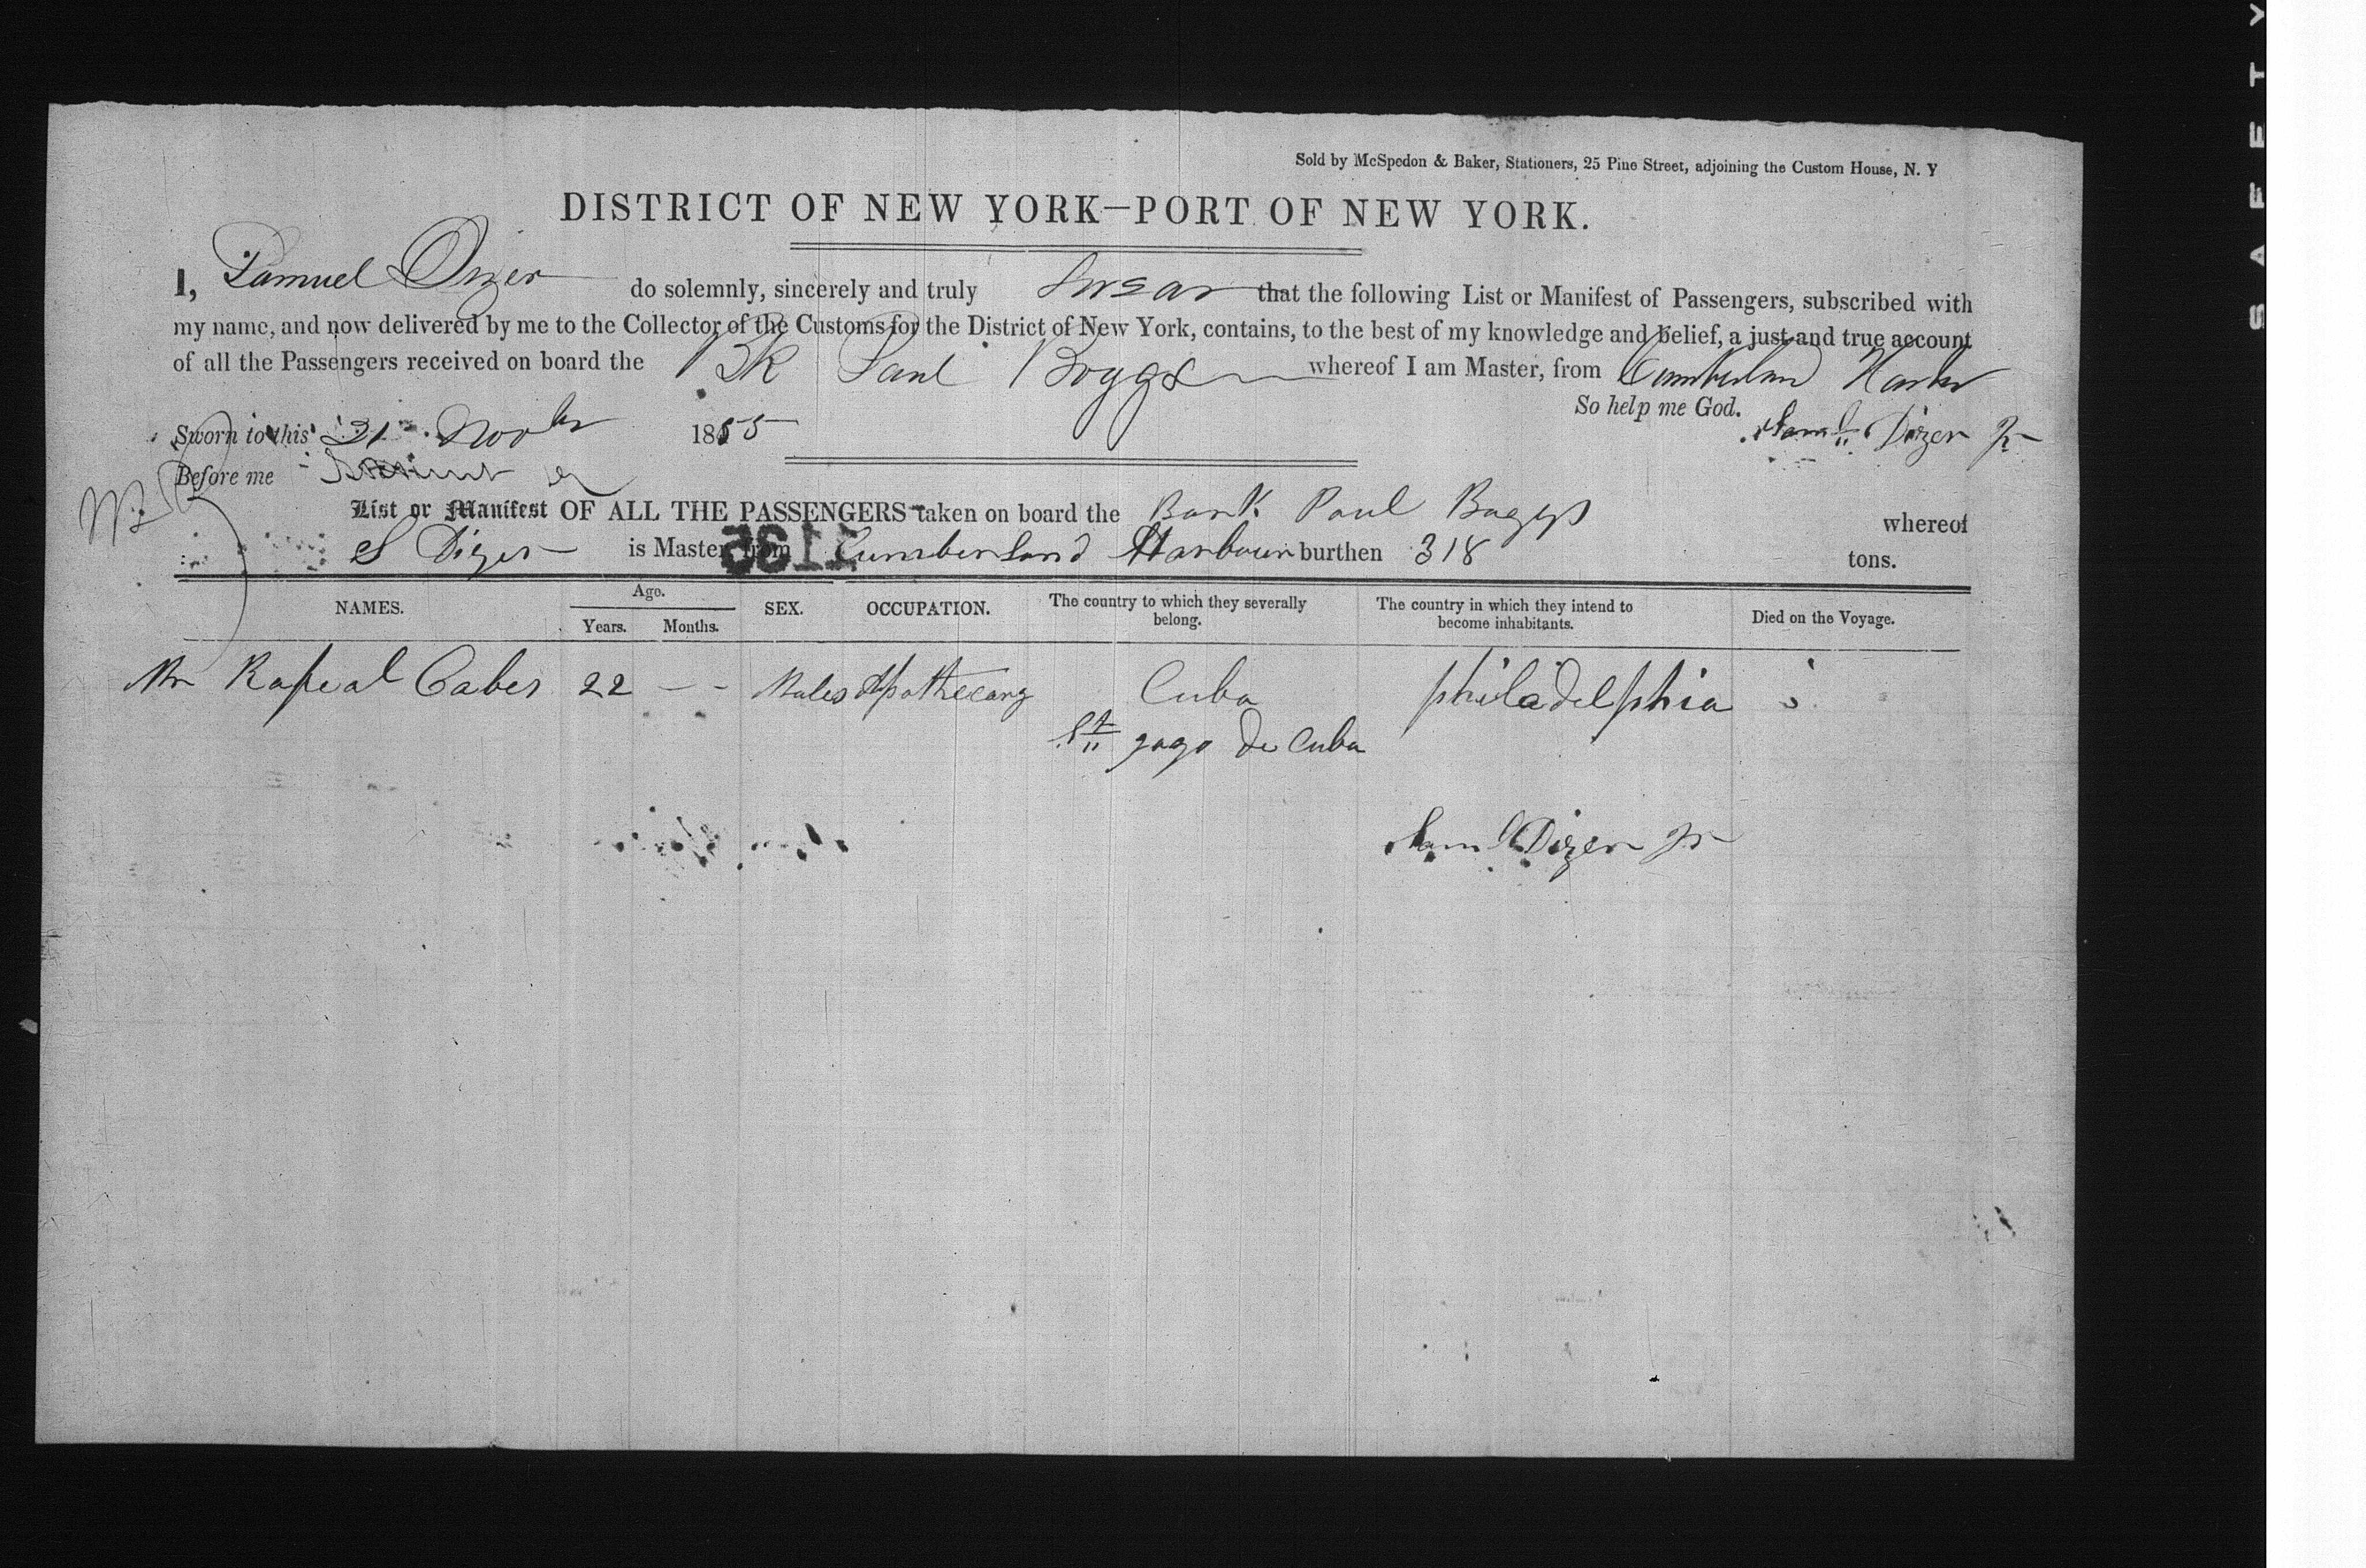 SAFETY
Sold by McSpedon & Baker, Stationers, 25 Pine Street, adjoining the Custom House, N. Y
DISTRICT OF NEW YORK—PORT OF NEW YORK.
I, Samuel Dizer do solemnly, sincerely and truly Swear that the following List or Manifest of Passengers, subscribed with
my name, and now delivered by me to the Collector of the Customs for the District of New York, contains, to the best of my knowledge and belief, a just and true account
of all the Passengers received on board the Bk Paul Boggs whereof I am Master, from Cumberland Harbr
So help me God.
Sworn to this 21 Novbr 1855 Saml Dizer Jr
Before me
List or Manifest OF ALL THE PASSENGERS taken on board the Bark Paul Boggs whereof
S Dizer is Master, from Cumberland Harbour burthen 318 tons.
1195
NAMES. Age. Years. Months. SEX. OCCUPATION. The country to which they severally belong. The country in which they intend to become inhabitants. Died on the Voyage.
Mr Rafeal Cabes 22 - - Males Apothecary Cuba philadelphia
St jago de Cuba
Saml Dizer Jr